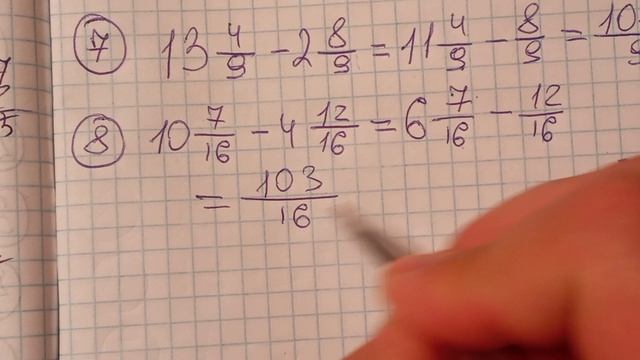 ⑦ 13 4/9 - 2 8/9 = 11 4/9 - 8/9 = 10
⑧ 10 7/16 - 4 12/16 = 6 7/16 - 12/16
= 103/16